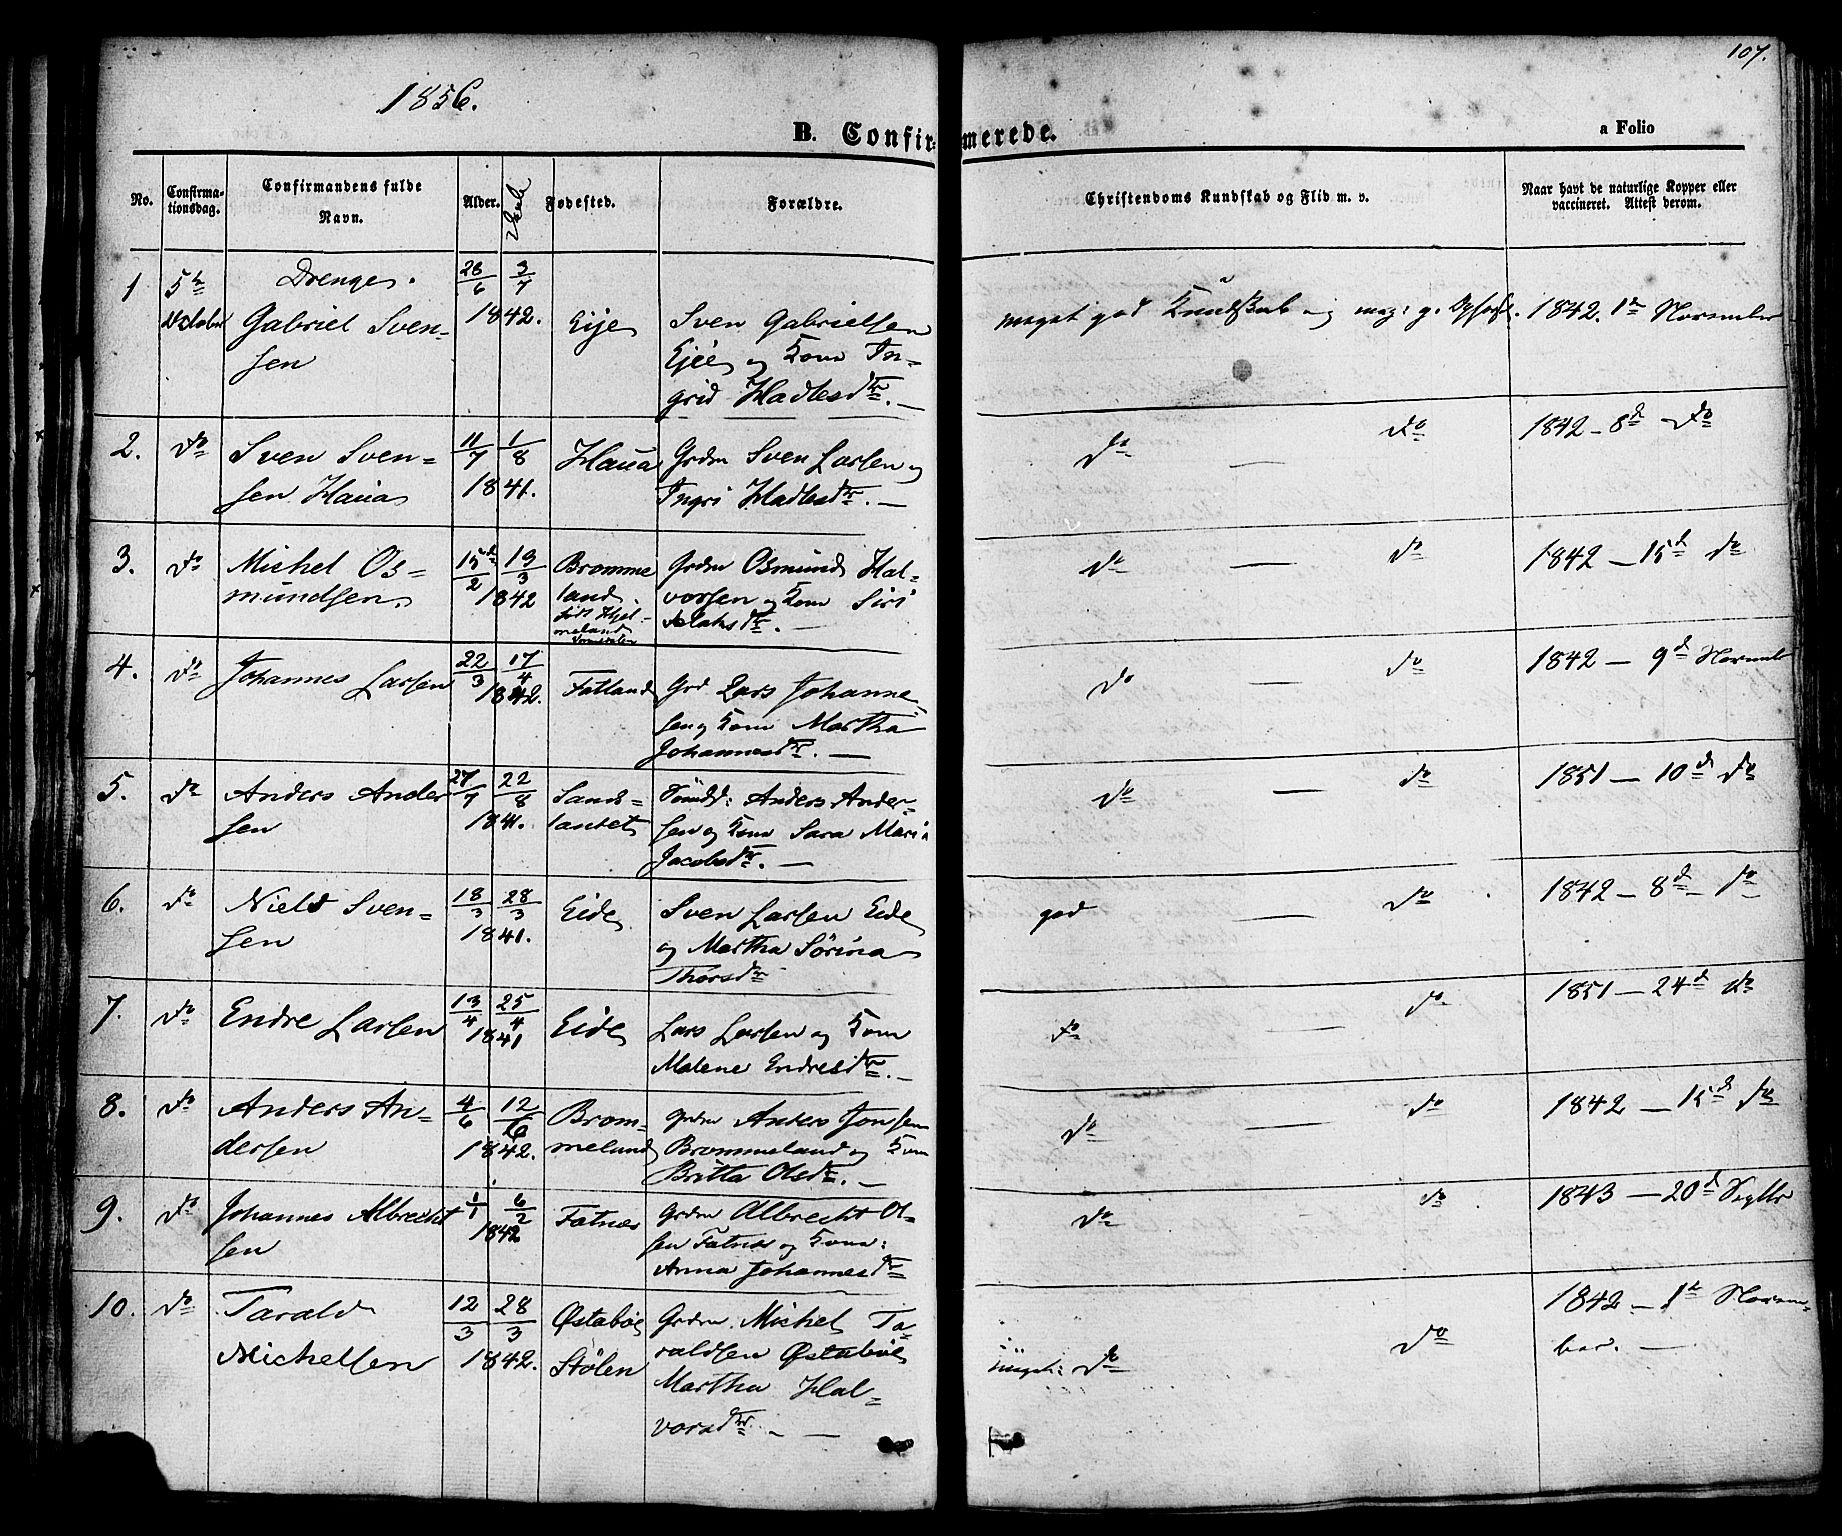 107.
1856.
B. Confirmerede.
a Folio
No.
Confirmationsdag.
Confirmandens fulde Navn.
Alder.
Fødested.
Forældre.
Christendoms Kundskab og Flid m. v.
Naar havt de naturlige Kopper eller vaccineret. Attest derom.
Drenge.
1 5te October Gabriel Svensen 28/6 3/7 1842. Eije Sven Gabrielsen Eije og Kone Ingrid Hadlesdtr. — meget god Kundskab og meg: g. 1842. 1te November
2. do Sven Svensen Haua 11/7 1/8 1841. Haua Grdm Sven Larsen og Ingri Hadlesdtr. — do — do 1842 - 8d - do
3. do Michel Osmundsen. 15de/2 19/3 1842 Brommeland. født Hjelmeland Grdm Osmund Halvorsen og Kone Siri Aslaksdtr. — do — do 1842 — 15d do
4. do Johannes Larsen 22/3 17/4 1842. Fatland Grd Lars Johannesen og Kone Martha Johannesdtr. — do — do 1842 — 9d Novembr
5. do Anders Andersen 27/7 22/8 1841. Sandslandet Anders Andersen og Kone Sara Maria Jacobsdtr. — do — do 1851 — 10d do
6. do Niels Svensen 18/3 28/3 1841. Eide Sven Larsen Eide og Martha Sørina Thorsdtr god — do 1842 — 8d - do
7. do Endre Larsen 13/4 25/4 1841 Eide Lars Larsen og Kone Malene Endresdtr. — do — do 1851 — 24d do
8. do Anders Andersen 4/6 12/6 1842. Brommeland Grdm Anders Jonsen Brommeland og Kone Britta Olsdtr. — do — do 1842 — 15d do
9. do Johannes Albrechtsen 1/1 6/2 1842 Fatnes Grdm Albrecht Olsen Fatnes og Kone: Anna Johannesdtr do — do 1843 — 20d Septbr
10. do Tarald Michelsen 12/3 28/3 1842. Østabøe Stølen Grdm. Michel Taraldsen Østabøe Martha Halvorsdtr. — do do 1842 — 1te November. —